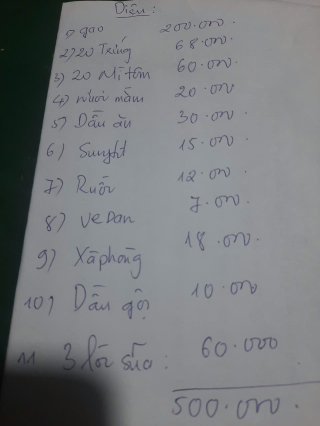 Diện:
1) gạo 200.000
2) 20 Trứng 68.000
3) 20 Mì tôm 60.000
4) nước mắm 20.000
5) Dầu ăn 30.000
6) Sunght 15.000
7) Ruốc 12.000
8) vedan 7.000
9) Xà phòng 18.000
10) Dầu gội 10.000
11 3 lốc sữa: 60.000
500.000.